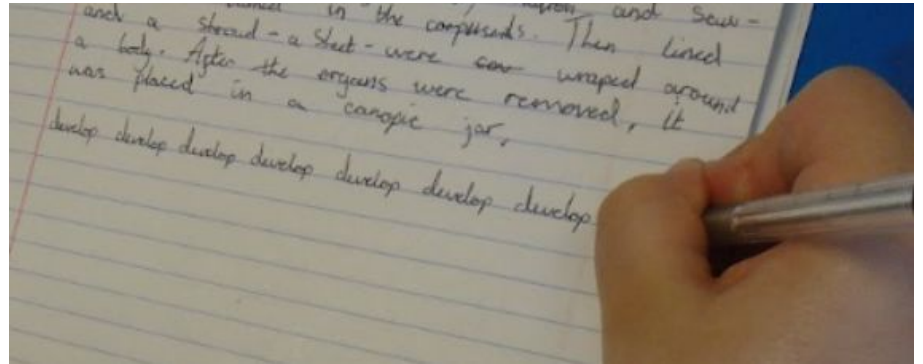 and Saw-
in the compounds. Then lined
and a stroud - a Sheet - were wraped around
a body. After the organs were removed, it
was placed in a canopic jar.
develop develop develop develop develop develop develop